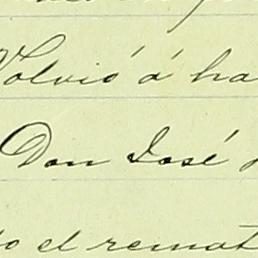 Volvió á ha
Don José
o el remat